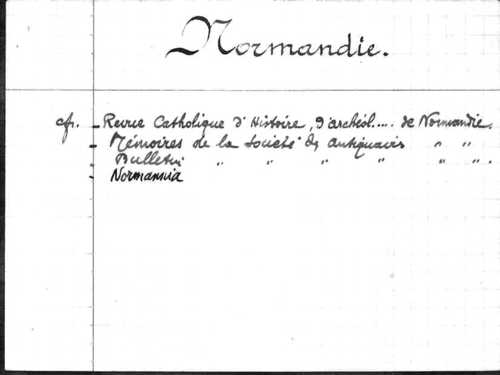 Normandie.
cfr. - Revue Catholique d'Histoire, d'archéol.... de Normandie.
- Mémoires de la Société des Antiquaires " "
- Bulletin " " " " " " .
- Normannia